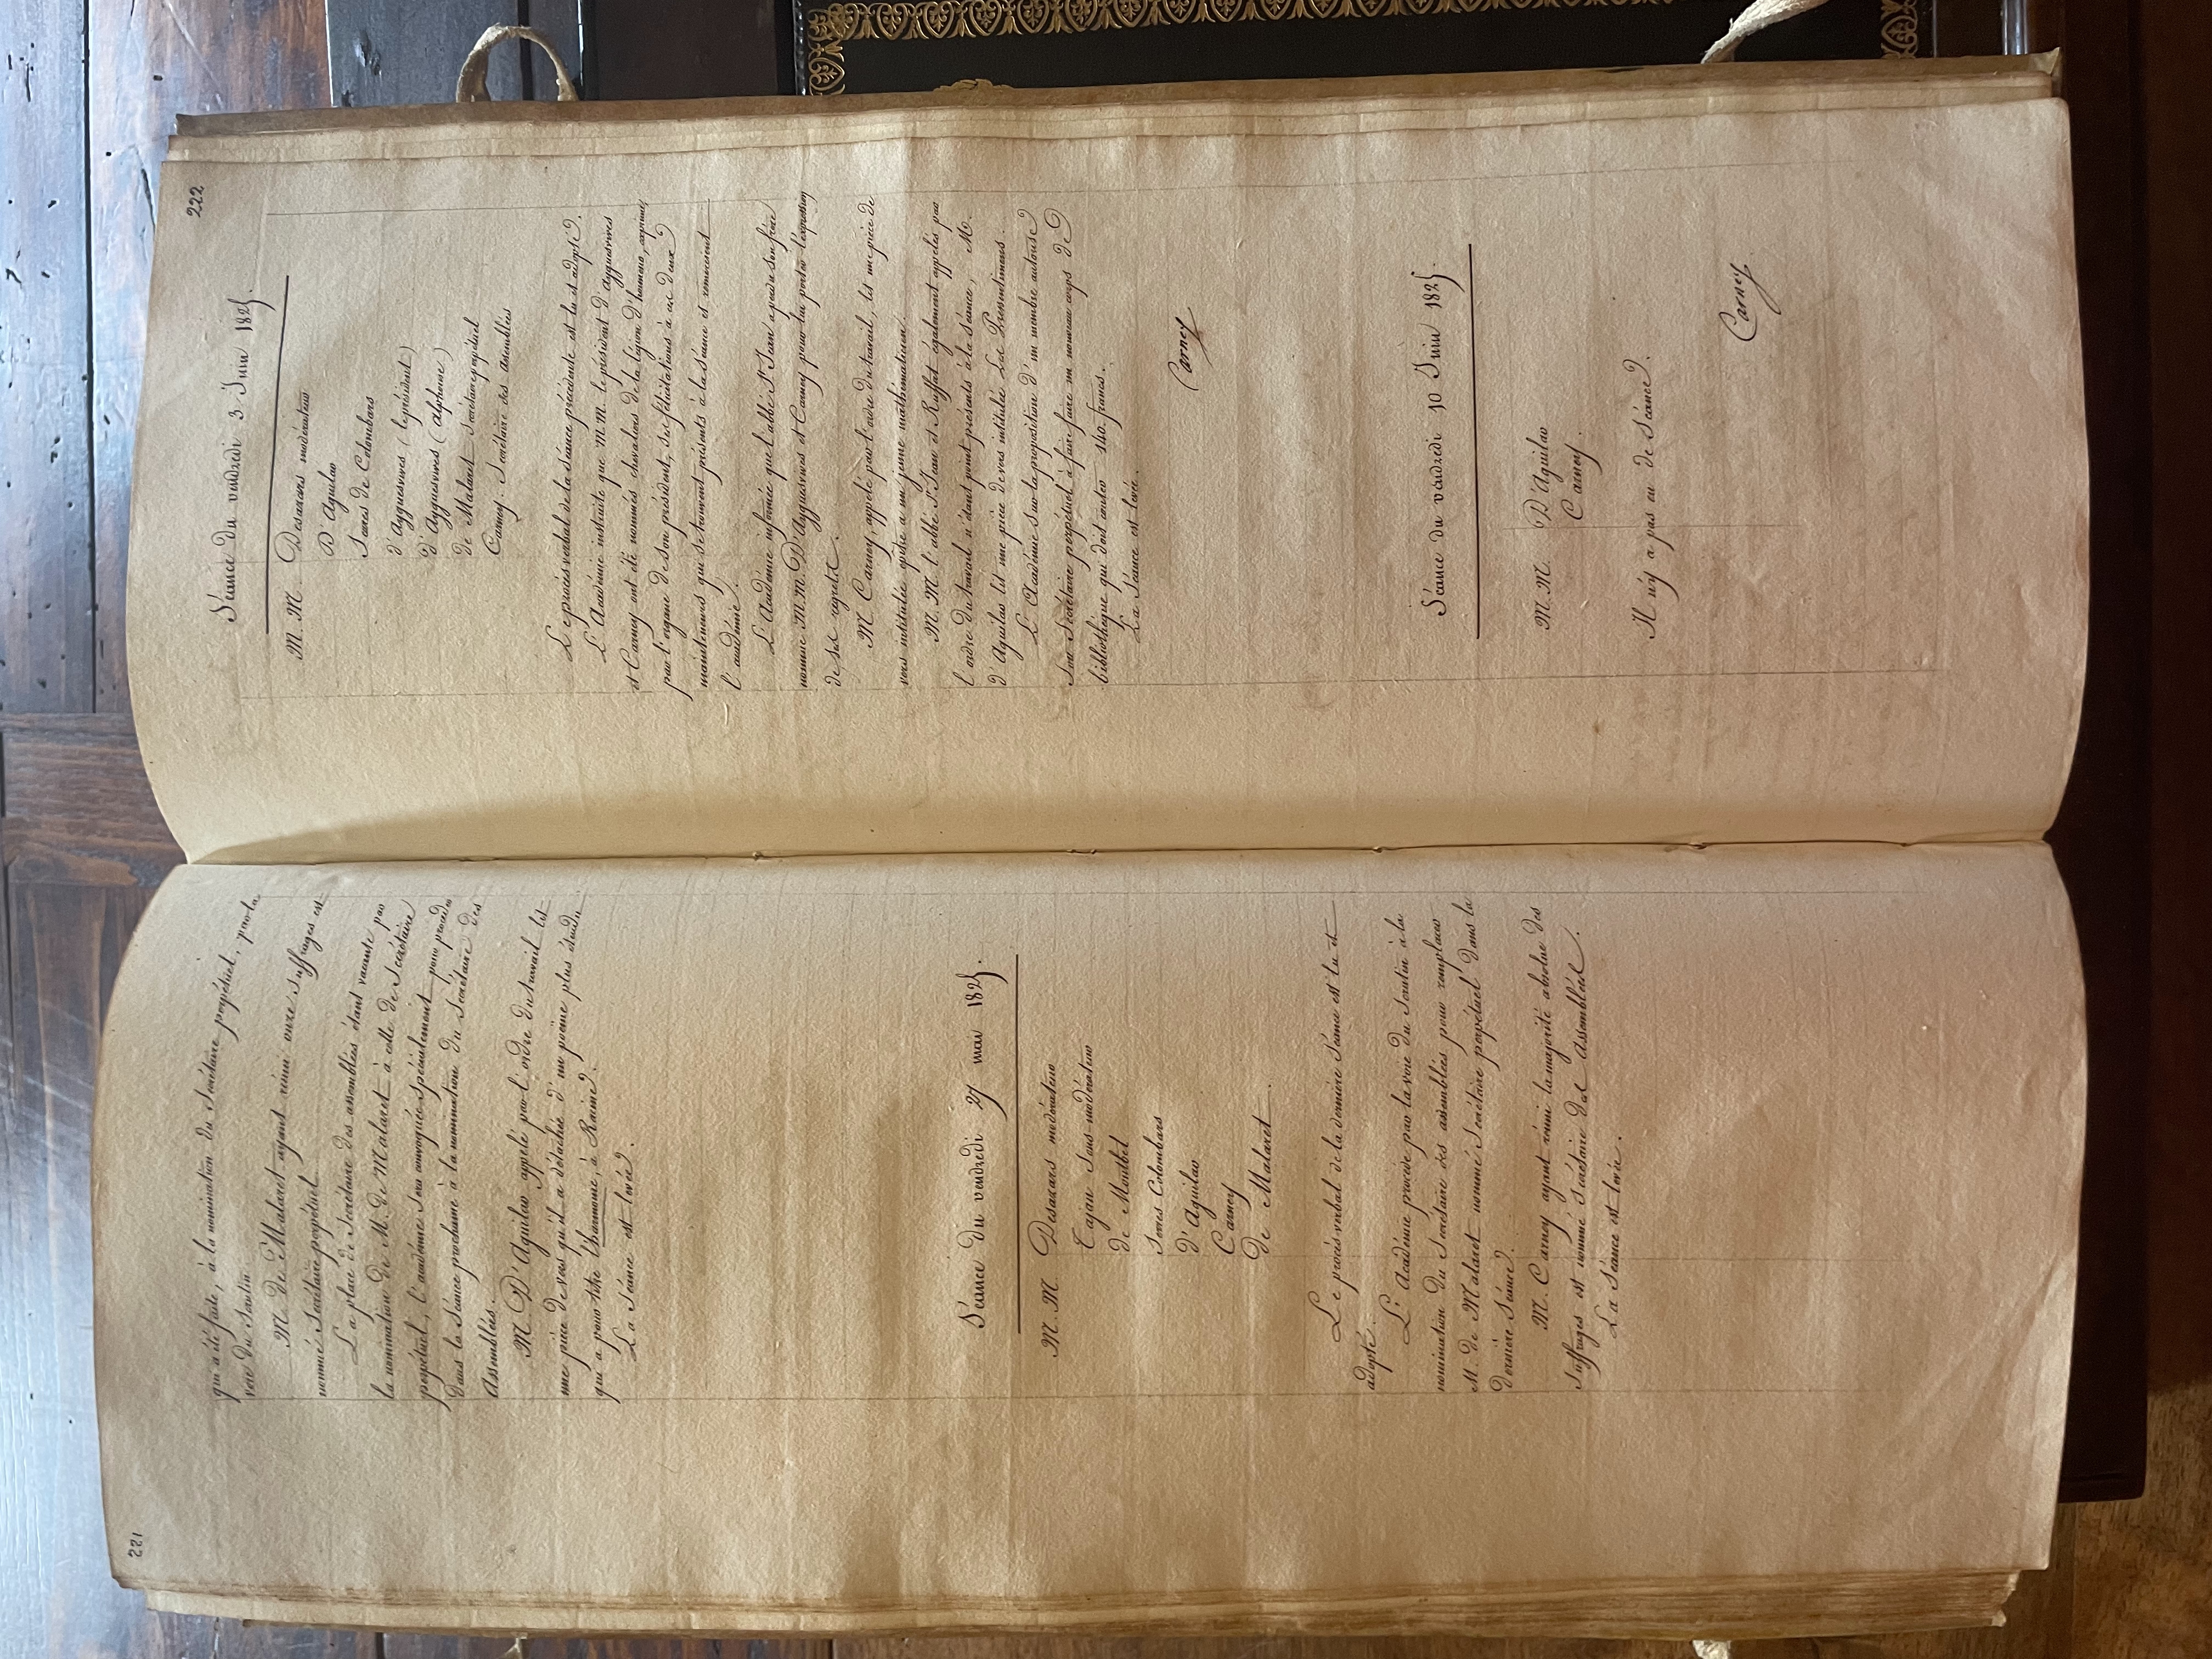 221
qui a été faite, à la nomination du Secrétaire perpétuel, par la
voie du Scrutin.
M. de Malaret ayant réuni onze suffrages est
nommé Secrétaire perpétuel.
La place de Secrétaire des assemblées étant vacante par
la nomination de M. de Malaret à celle de Secrétaire
perpétuel, l'académie sera convoquée spécialement pour procéder
dans la Séance prochaine à la nomination du Secrétaire des
Assemblées.
M. D'Aguilar appelé par l'ordre du travail lit
une pièce de vers qu'il a détachée d'un poëme plus étendu
qui a pour titre l'harmonie, à Racine.
La Séance est levée.
Séance du vendredi 27 mai 1825.
M. M. Desazars modérateur
Cajan Sous-modérateur
de Montbel
Serres Colombars
d'Aguilar
Carney
de Malaret
Le procès verbal de la dernière Séance est lu et
adopté.
L'Académie procède par la voie du Scrutin à la
nomination du Secrétaire des assemblées pour remplacer
M. de Malaret nommé Secrétaire perpétuel dans la
dernière Séance.
M. Carney ayant réuni la majorité absolue des
Suffrages est nommé Secrétaire des Assemblées.
La Séance est levée.
222
Séance du vendredi 3 Juin 1825.
M. M. Desazars modérateur
D'Aguilar
Serres de Colombars
d'Ayguesvives (le président)
d'Ayguesvives (alphonse)
de Malaret Secrétaire perpétuel
Carney. Secrétaire des assemblées
Le procès verbal de la Séance précédente est lu et adopté.
L'Académie instruite que M. M. le président d'ayguesvives
et Carney ont été nommés chevaliers de la légion d'honneur, exprime,
par l'organe de son président, ses félicitations à ces deux
mainteneurs qui se trouvent présents à la Séance et remercient
l'académie.
L'Académie informée que l'abbé St. Jean a perdu son frère
nomme M. M. D'Ayguesvives et Carney pour lui porter l'expression
de ses regrets.
M. Carney, appelé par l'ordre du travail, lit une pièce de
vers intitulée epître a un jeune mathématicien.
M. M. l'abbé St. Jean et Ruffat également appelés par
l'ordre du travail n'étant point présents à la séance, M.
d'Aguilar lit une pièce de vers intitulée Les Pressentimens.
L'Académie Sur la proposition d'un membre autorise
Son Secrétaire perpétuel à faire faire un nouveau corps de
bibliothèque qui doit couter 140 francs.
La Séance est levée.
Carney
Séance du vendredi 10 Juin 1825.
M. M. D'Aguilar
Carney.
Il n'y a pas eu de Séance.
Carney